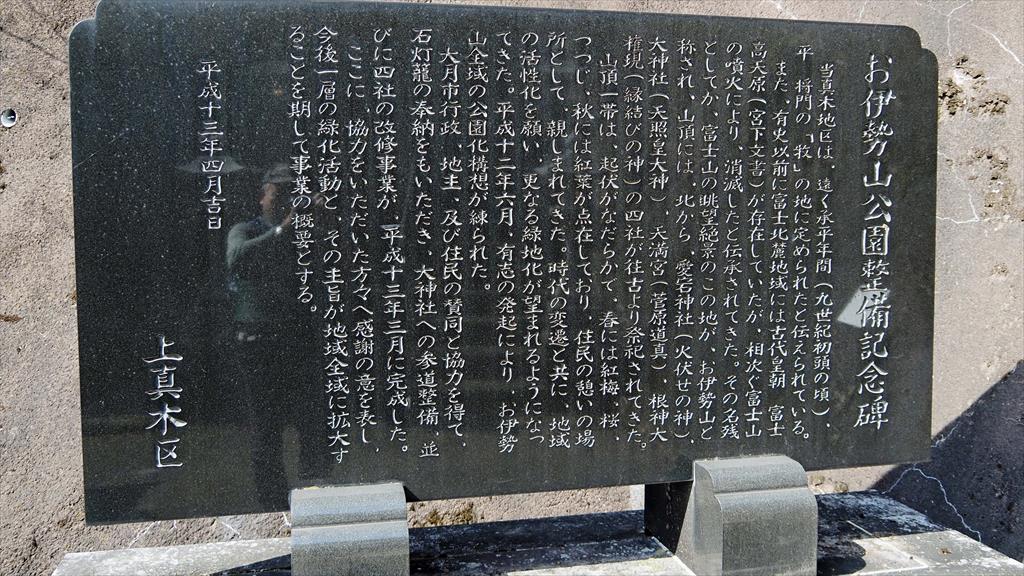 お伊勢山公園整備記念碑
当真木地区は、遠く承平年間(九世紀初頭の頃)、
平 将門の「牧」の地に定められたと伝えられている。
また、有史以前に富士北麓地域には古代皇朝 富士
高天原(宮下文書)が存在していたが、相次ぐ富士山
の噴火により、消滅したと伝承されてきた。その名残
としてか、富士山の眺望絶景のこの地が、お伊勢山と
称され、山頂には、北から、愛宕神社(火伏せの神)、
大神社(天照皇大神)、天満宮(菅原道真)、根神大
権現(縁結びの神)の四社が往古より祭祀されてきた。
山頂一帯は、起伏がなだらかて、春には紅梅、桜、
つつじ、秋には紅葉が点在しており、住民の憩いの場
所として、親しまれてきた。時代の変遷と共に、地域
の活性化を願い、更なる緑地化が望まれるようになっ
てきた。平成十二年六月、有志の発起により、お伊勢
山全域の公園化構想が練られた。
大月市行政、地主、及び住民の賛同と協力を得て、
石灯籠の奉納をもいただき、大神社への参道整備、並
びに四社の改修事業が、平成十三年三月に完成した。
ここに、協力をいただいた方々へ感謝の意を表し、
今後一層の緑化活動と、その主旨が地域全域に拡大す
ることを期して事業の概要とする。
平成十三年四月吉日
上真木区